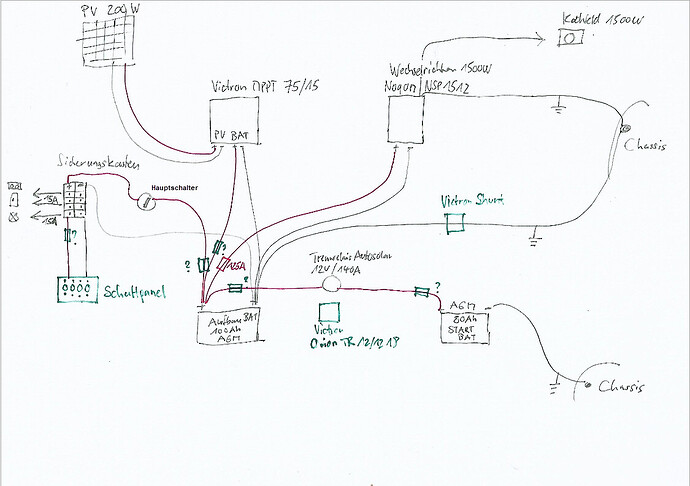 PV 200W
Kochfeld 1500W
Victron MPPT 75/15
Wechselrichter 1500W
NSP1512
PV BAT
Chassis
Sicherungskasten
Hauptschalter
15A
15A
?
Victron Shunt
?
?
125A
Trennrelais Autosolar
12V/140A
?
?
Schaltpanel
Aufbau BAT
100Ah
AGM
AGM
80Ah
START
BAT
Orion TR 12/12 18
Chassis